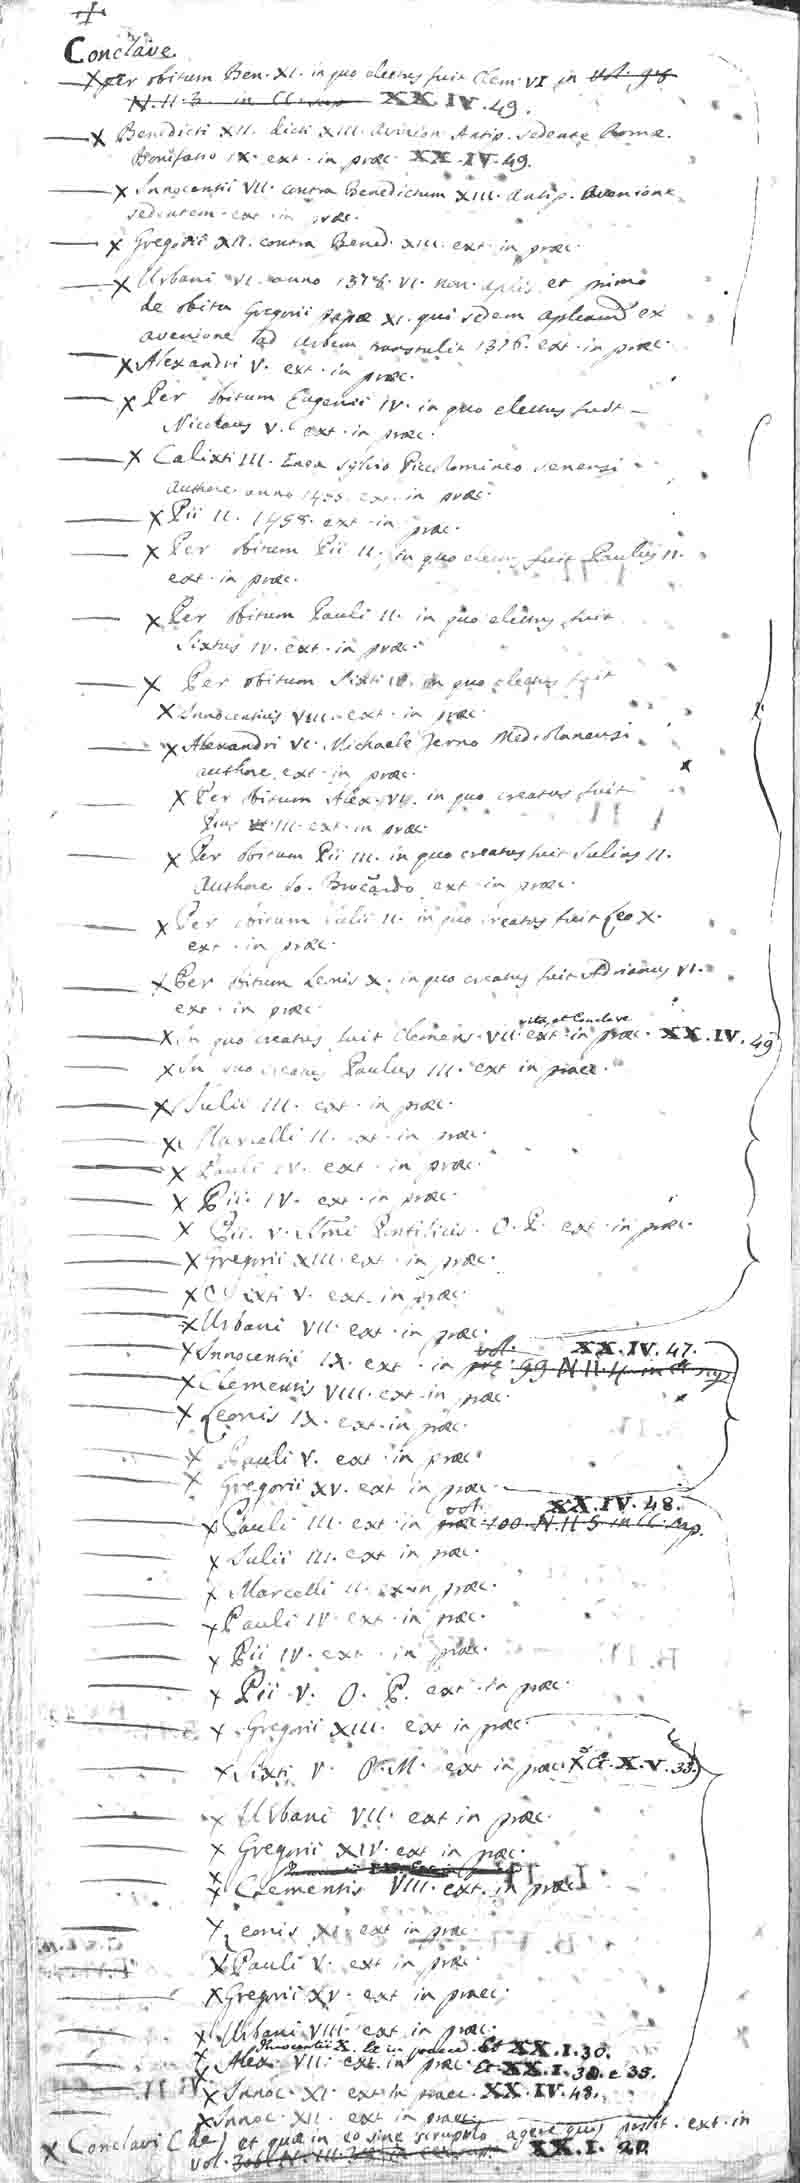 Conclave
X per obitum Ben. XI. in quo electus fuit Clem. VI in vol. 98
N. II. 3. in XX.IV.49.
X Benedicti XII. dicti XIII. Avinion. Antip. sedente Romæ
Bonifatio IX. ext. in præc. XX.IV.49.
X Innocentii VII. contra Benedictum XIII. Antip. Avenione
sedentem ext. in præc.
X Gregorii XII. contra Bened. XIII. ext. in præc.
X Urbani VI. anno 1378. VI. non. aplis et primo
de obitu Gregorii papæ XI. qui sedem aplicam ex
avenione ad Urbem transtulit 1376. ext. in præc.
X Alexandri V. ext. in præc.
X Per obitum Eugenii IV. in quo electus fuit
Nicolaus V. ext. in præc.
X Calixti III. Enea Sylvio Piccolomineo senensi
authore anno 1455. ext. in præc.
X Pii II. 1458. ext. in præc.
X Per obitum Pii II. in quo electus fuit Paulus II.
ext. in præc.
X Per obitum Pauli II. in quo electus fuit
Sixtus IV. ext. in præc.
X Per obitum Sixti IV. in quo electus fuit
X Innocentius VIII. ext. in præc.
X Alexandri VI. Michaele Ferno Mediolanensi
authore ext. in præc.
X Per obitum Alex. VI. in quo creatus fuit
Pius III. ext. in præc.
X Per obitum Pii III. in quo creatus fuit Julius II.
Authore Jo. Brocardo ext. in præc.
X Per obitum Julii II. in quo creatus fuit Leo X.
ext. in præc.
X Per obitum Leonis X. in quo creatus fuit Adrianus VI.
ext. in præc.
vita, et Conclave
X In quo creatus fuit Clemens VII. ext. in præc. XX.IV.49
X In quo creatus Paulus III. ext in præc.
X Julii III. ext. in præc.
X Marcelli II. ext. in præc.
X Pauli IV. ext. in præc.
X Pii IV. ext. in præc.
X Pii V. Pontificis O. P. ext. in præc.
X Gregorii XIII. ext. in præc.
X Sixti V. ext. in præc.
X Urbani VII. ext. in præc.
vol. XX.IV.47.
X Innocentii IX. ext. in præ 99 N. II. 4. in
X Clementis VIII. ext. in præc.
X Leonis IX. ext. in præc.
X Pauli V. ext. in præc.
X Gregorii XV. ext in præc.
vol. XX.IV.48.
X Pauli III. ext in præc. 100. N. II 5 in
X Julii III. ext in præc.
X Marcelli II. ex in præc.
X Pauli IV. ext. in præc.
X Pii IV. ext. in præc.
X Pii V. O. P. ext. in præc.
X Gregorii XIII. ext in præc.
X Sixti V. P. M. ext in præc. X X.V.33)
X Urbani VII. ext in præc.
X Gregorii XIV. ext in præc.
X
X Clementis VIII. ext. in præc.
X Leonis XI. ext in præc.
X Pauli V. ext in præc.
X Gregorii XV. ext in præc.
X Urbani VIII. ext in præc.
X Innocentii X. Et in præced. et XX.I.30.
X Alex. VII. ext. in præc. Et XX.I.30. e 35.
X Innoc. XI. ext in præc. XX.IV.48.
X Innoc. XII. ext in præc.
X Conclavi (de) et quæ in eo sine scrupulo agere quis possit. ext. in
vol. XX.I. 20.